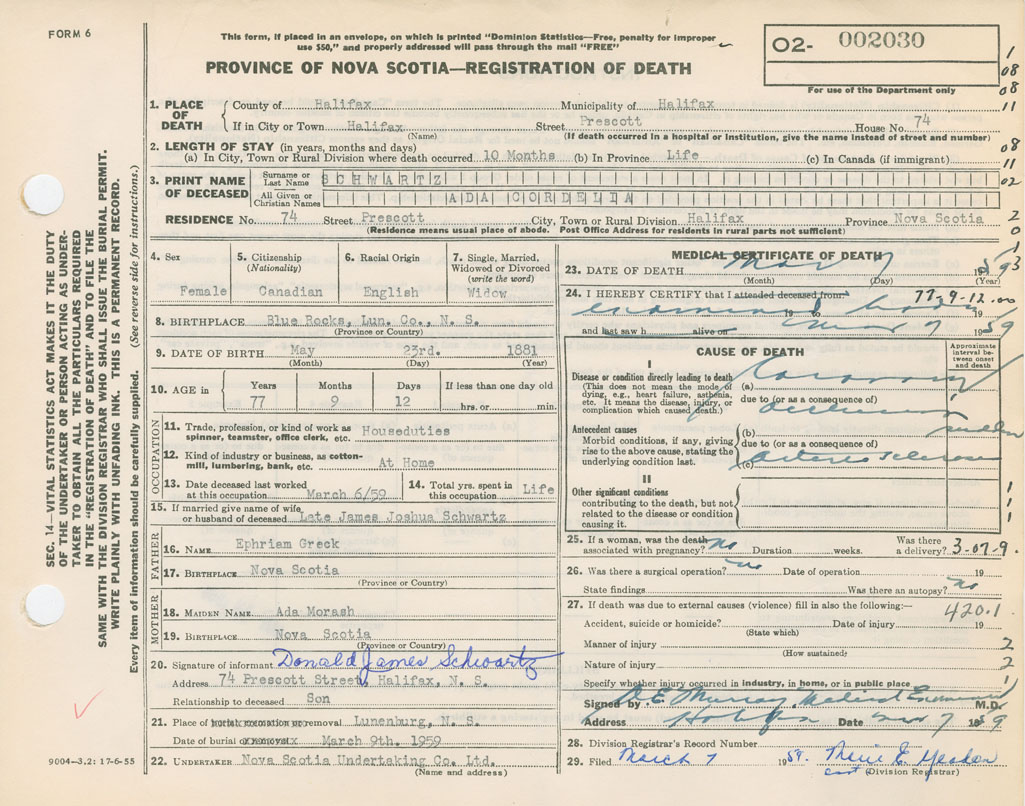 FORM 6
This form, if placed in an envelope, on which is printed "Dominion Statistics—Free, penalty for improper
use $50," and properly addressed will pass through the mail "FREE"
PROVINCE OF NOVA SCOTIA—REGISTRATION OF DEATH
O2- 002030
For use of the Department only
1
08
08
11
08
11
02
2
0
1
3
SEC. 14—VITAL STATISTICS ACT MAKES IT THE DUTY
OF THE UNDERTAKER OR PERSON ACTING AS UNDER-
TAKER TO OBTAIN ALL THE PARTICULARS REQUIRED
IN THE "REGISTRATION OF DEATH" AND TO FILE THE
SAME WITH THE DIVISION REGISTRAR WHO SHALL ISSUE THE BURIAL PERMIT.
WRITE PLAINLY WITH UNFADING INK. THIS IS A PERMANENT RECORD.
Every item of information should be carefully supplied. (See reverse side for instructions.)
1. PLACE OF DEATH County of Halifax Municipality of Halifax
If in City or Town Halifax Street Prescott House No. 74
(Name) (If death occurred in a hospital or institution, give the name instead of street and number)
2. LENGTH OF STAY (in years, months and days)
(a) In City, Town or Rural Division where death occurred 10 Months (b) In Province Life (c) In Canada (if immigrant)
3. PRINT NAME OF DECEASED Surname or Last Name SCHWARTZ
All Given or Christian Names ADA CORDELIA
RESIDENCE No. 74 Street Prescott City, Town or Rural Division Halifax Province Nova Scotia
(Residence means usual place of abode. Post Office Address for residents in rural parts not sufficient)
4. Sex Female
5. Citizenship (Nationality) Canadian
6. Racial Origin English
7. Single, Married, Widowed or Divorced (write the word) Widow
8. BIRTHPLACE Blue Rocks, Lun. Co., N. S.
(Province or Country)
9. DATE OF BIRTH May 23rd. 1881
(Month) (Day) (Year)
10. AGE in Years Months Days If less than one day old
77 9 12 hrs. or min.
OCCUPATION
11. Trade, profession, or kind of work as spinner, teamster, office clerk, etc. Houseduties
12. Kind of industry or business, as cotton-mill, lumbering, bank, etc. At Home
13. Date deceased last worked at this occupation March 6/59
14. Total yrs. spent in this occupation Life
15. If married give name of wife or husband of deceased Late James Joshua Schwartz
FATHER
16. NAME Ephriam Greck
17. BIRTHPLACE Nova Scotia
(Province or Country)
MOTHER
18. MAIDEN NAME Ada Morash
19. BIRTHPLACE Nova Scotia
(Province or Country)
20. Signature of informant Donald James Schwartz
Address 74 Prescott Street, Halifax, N. S.
Relationship to deceased Son
21. Place of burial cremation or removal Lunenburg, N. S.
Date of burial or removal March 9th. 1959
22. UNDERTAKER Nova Scotia Undertaking Co. Ltd.
(Name and address)
9004—3.2: 17-6-55
MEDICAL CERTIFICATE OF DEATH
23. DATE OF DEATH Mar 7 1959
(Month) (Day) (Year)
24. I HEREBY CERTIFY that I attended deceased from 77-9-12.00
examined body 19 to 19
and last saw h alive on Mar 7 1959
CAUSE OF DEATH
Approximate interval between onset and death
I
Disease or condition directly leading to death
(This does not mean the mode of dying, e.g., heart failure, asthenia, etc. It means the disease, injury, or complication which caused death.)
(a) Coronary
due to (or as a consequence of)
1
Antecedent causes
Morbid conditions, if any, giving rise to the above cause, stating the underlying condition last.
(b) sudden
due to (or as a consequence of)
(c) arterio sclerosis
II
Other significant conditions
contributing to the death, but not related to the disease or condition causing it.
1
1
1
25. If a woman, was the death associated with pregnancy? no Duration weeks. Was there a delivery? 3-07-9.
26. Was there a surgical operation? no Date of operation 19
State findings Was there an autopsy? no
27. If death was due to external causes (violence) fill in also the following:— 420.1
Accident, suicide or homicide? Date of injury 19
(State which)
Manner of injury 2
(How sustained)
Nature of injury 2
Specify whether injury occurred in industry, in home, or in public place 1
Signed by D. E. Murray Medical Examiner M.D.
Address Halifax Date Mar 7 1959
28. Division Registrar's Record Number
29. Filed March 7 1959.
(Division Registrar)